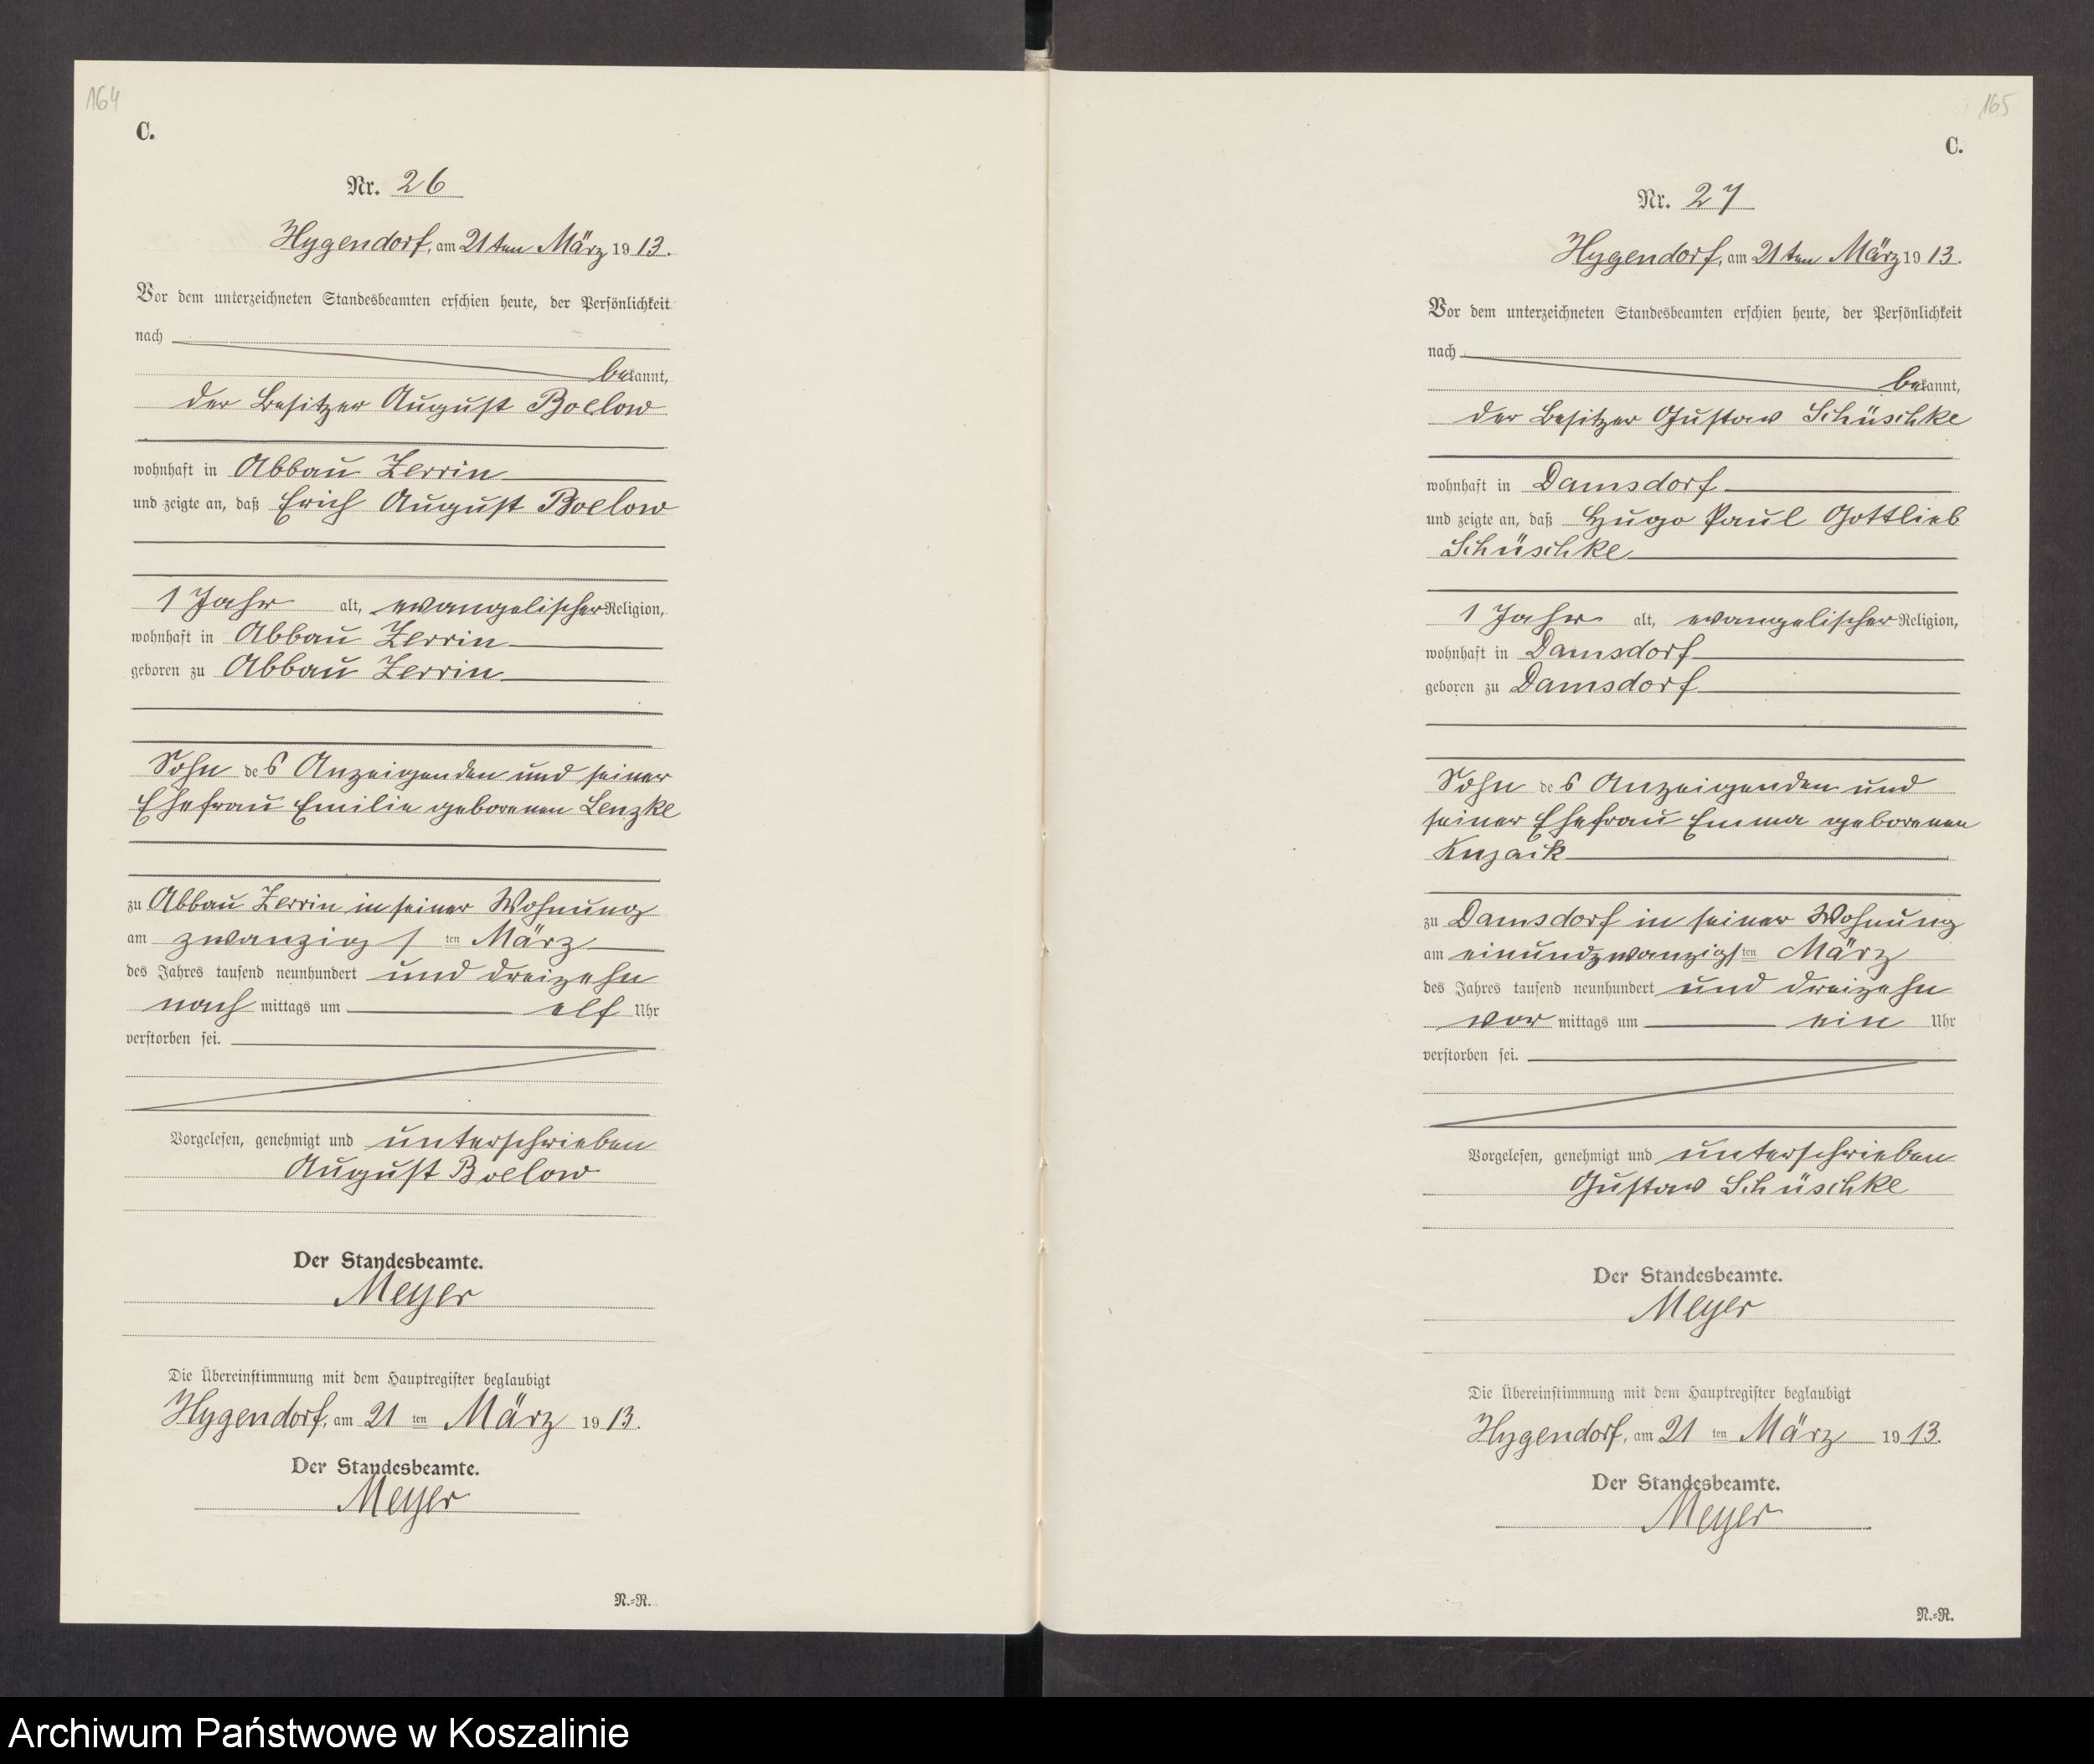 164
C.
Nr. 26
Hygendorf, am 21ten März 1913.
Vor dem unterzeichneten Standesbeamten erschien heute, der Persönlichkeit
nach
bekannt,
der Besitzer August Boelow
wohnhaft in Abbau Zerrin
und zeigte an, daß Erich August Boelow
1 Jahr alt, evangelischer Religion,
wohnhaft in Abbau Zerrin
geboren zu Abbau Zerrin
Sohn des Anzeigenden und seiner
Ehefrau Emilie geborenen Lenzke
zu Abbau Zerrin in seiner Wohnung
am zwanzigsten März
des Jahres tausend neunhundert und dreizehn
nach mittags um elf Uhr
verstorben sei.
Vorgelesen, genehmigt und unterschrieben
August Boelow
Der Standesbeamte.
Meyer
Die Übereinstimmung mit dem Hauptregister beglaubigt
Hygendorf, am 21 ten März 1913.
Der Standesbeamte.
Meyer
N.=R.
165
C.
Nr. 27
Hygendorf, am 21ten März 1913.
Vor dem unterzeichneten Standesbeamten erschien heute, der Persönlichkeit
nach
bekannt,
der Besitzer Gustav Schüschke
wohnhaft in Damsdorf
und zeigte an, daß Hugo Paul Gottlieb
Schüschke
1 Jahr alt, evangelischer Religion,
wohnhaft in Damsdorf
geboren zu Damsdorf
Sohn des Anzeigenden und
seiner Ehefrau Emma geborenen
zu Damsdorf in seiner Wohnung
am einundzwanzigsten März
des Jahres tausend neunhundert und dreizehn
vor mittags um ein Uhr
verstorben sei.
Vorgelesen, genehmigt und unterschrieben
Gustav Schüschke
Der Standesbeamte.
Meyer
Die Übereinstimmung mit dem Hauptregister beglaubigt
Hygendorf, am 21 ten März 1913.
Der Standesbeamte.
Meyer
N.=R.
Archiwum Państwowe w Koszalinie